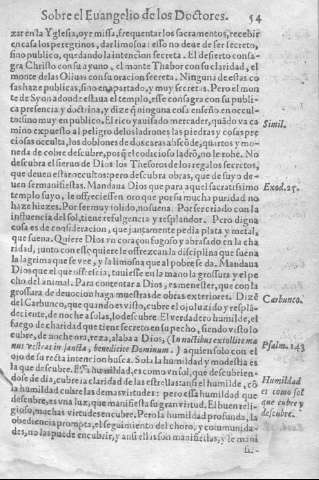 Sobre el Euangelio de los Doctores. 54
zar en la Yglesia, oyr missa, frequentar los sacramentos, recebir
en casa los peregrinos, dar limosna: esso no deue de ser secreto,
sino publico, quedando la intencion secreta. El desierto consa-
gra Christo con su ayuno, el monte Thabor con su claridad, el
monte de las Oliuas con su oracion secreta. Ninguna de estas co
sas haze publicas, sino en apartado, y muy secretas. Pero el mon
te de Syon adonde estaua el templo, esse consagra con su publi-
ca presencia y doctrina, y dize que ninguna cosa enseño en occul-
to, sino muy en publico. El rico y auisado mercader, quando va ca
mino expuesto al peligro de los ladrones las piedras y cosas pre
ciosas occulta, los doblones de dos caras absconde, quartos y mo-
neda de cobre descubre, porque el codicioso ladron, no le robe. No
descubra el sieruo de Dios los Thesoros de los regalos secretos,
que deuen estar occultos: pero descubra obras, que de suyo de-
uen ser manifiestas. Mandaua Dios que para aquel sacratissimo
templo suyo, le offreciessen oro que por su mucha puridad no
haze hiezes. Por ser muy solido, no suena. Por ser criado con la
influencia del sol, tiene refulgencia y resplandor. Pero digna
cosa es de consideracion, que juntamente pedia plata y metal,
que suena. Quiere Dios vn coraçon fugoso y abrasado en la cha
ridad, junto con esse quiere le offrezcan la disciplina que suena
la lagrima que se vee, y la limosna que al pobre se da. Mandaua
Dios que el que offrecia, tuuiesse en la mano la grossura y el pe
cho del animal. Para contentar a Dios, es menester, que con la
grossura de deuocion haga muestras de obras exteriores. Dize
del Carbunco, que quando es visto, cubre el ojo luzido y respla-
deciente, de noche a solas, lo descubre. El verdadero humilde, el
fuego de charidad que tiene secreto en su pecho, siendo visto lo
cubre, de noche ora, reza, alaba a Dios, (In noctibus extollite ma
nus vestras in sancta, benedicite Dominum,) a quien solo con el
ojo de su recta intencion busca. Sola la humildad y modestia es
la que descubre. Essa humildad, es como vn sol, que descubrien-
dose de dia, cubre la claridad de las estrellas: ansi el humilde, co
la humildad cubre las demas virtudes: pero essa humildad que
descubre, es vna luz, que manifiesta su gran virtud. El buen reli-
gioso, muchas virtudes encubre. Pero la humildad profunda, la
obediencia prompta, el seguimiento del choro, y comunida-
des, no las puede encubrir, y ansi ellas son manifiestas, y le mani
fie-
Simil.
Exod. 25.
Carbunco.
Psalm. 143
Humildad
es como sol
que cubre y
descubre.